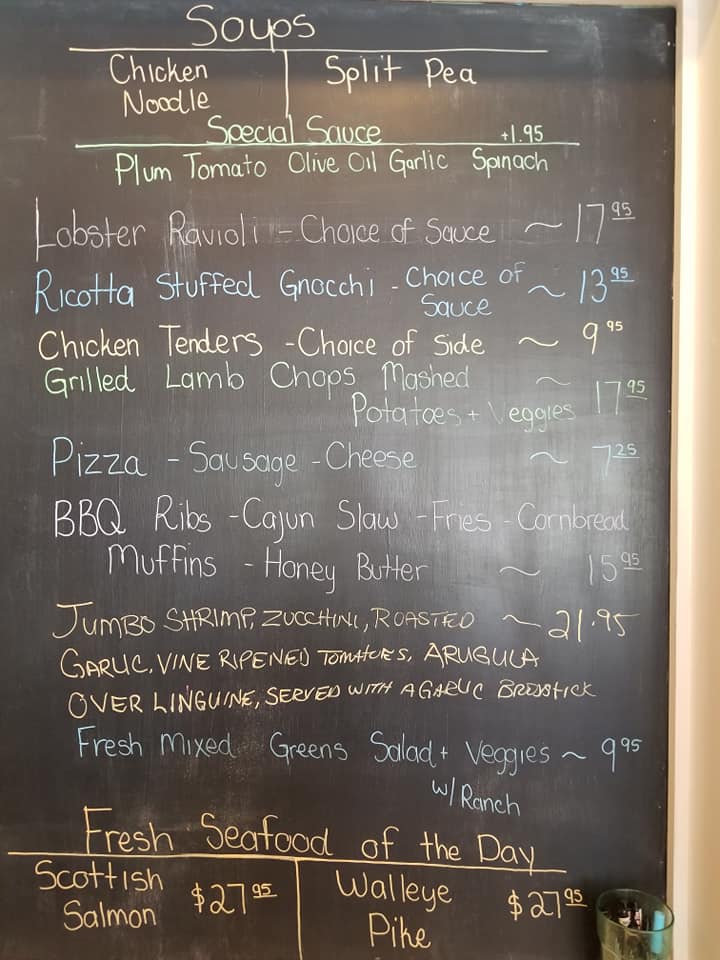 Soups
Chicken Noodle
Split Pea
Special Sauce +1.95
Plum Tomato Olive Oil Garlic Spinach
Lobster Ravioli - Choice of Sauce ~ 17 95
Ricotta Stuffed Gnocchi - Choice of Sauce ~ 13 95
Chicken Tenders - Choice of Side ~ 9 95
Grilled Lamb Chops Mashed ~ 17 95
Potatoes + Veggies
Pizza - Sausage - Cheese ~ 7 25
BBQ Ribs - Cajun Slaw - Fries - Cornbread
Muffins - Honey Butter ~ 15 95
JUMBO SHRIMP, ZUCCHINI, ROASTED ~ 21.95
GARLIC, VINE RIPENED TOMATOES, ARUGULA
OVER LINGUINE, SERVED WITH A GARLIC BREDSTICK
Fresh Mixed Greens Salad + Veggies ~ 9 95
w/ Ranch
Fresh Seafood of the Day
Scottish Salmon $27 95
Walleye Pike $27 95